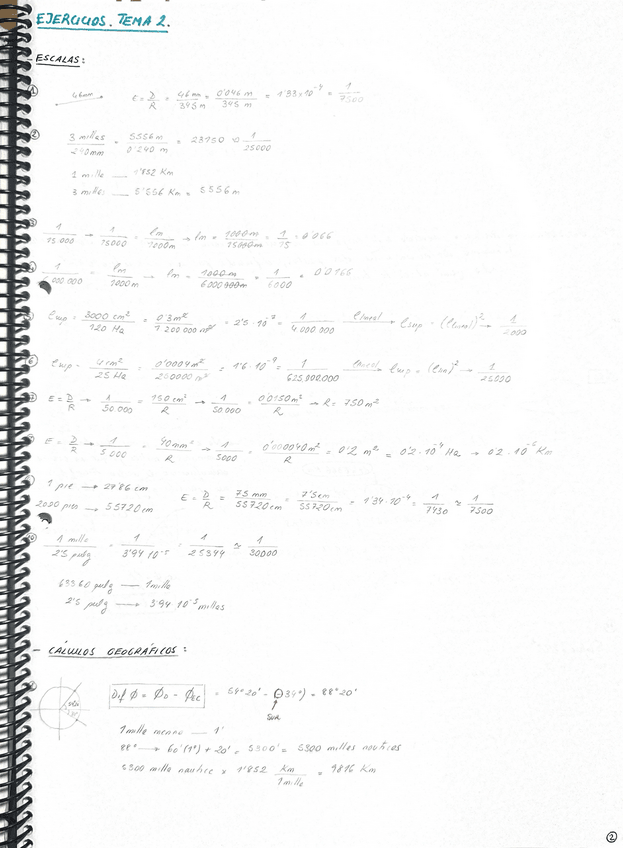 EJERCICIOS. TEMA 2.
- ESCALAS:
① 46mm E = D/R = 46 mm/345 m = 0'046 m/345 m = 1'33 × 10⁻⁴ = 1/7500
② 3 millas/240 mm = 5556 m/0'240 m = 23150 ≈ 1/25000
1 milla — 1'852 Km
3 millas — 5'556 Km = 5556 m
③ 1/15.000 → 1/15000 = lm/1000m → lm = 1000m/15000m = 1/15 = 0'066
1/6.000.000 = lm/1000m → lm = 1000m/6000000m = 1/6000 = 0'0166
Esup = 3000 cm²/120 Ha = 0'3 m²/1200000 m² = 2'5 · 10⁻⁷ = 1/4.000.000 Elineal → Esup = (Elineal)² → 1/2000
⑥ Esup = 4 cm²/25 Ha = 0'0004 m²/250000 m² = 1'6 · 10⁻⁹ = 1/625.000.000 Elineal → Esup = (Elin)² → 1/25000
E = D/R → 1/50.000 = 150 cm²/R → 1/50.000 = 0'0150 m²/R → R = 750 m²
E = D/R → 1/5.000 = 40 mm²/R → 1/5000 = 0'000040 m²/R = 0'2 m² = 0'2 · 10⁻⁴ Ha → 0'2 · 10⁻⁶ Km
1 pie → 27'86 cm
2000 pies → 55720 cm E = D/R = 75 mm/55720 cm = 7'5 cm/55720 cm = 1'34 · 10⁻⁴ = 1/7430 ≈ 1/7500
⑩ 1 milla/2'5 pulg = 1/3'94 · 10⁻⁵ = 1/25344 ≈ 1/30000
63360 pulg — 1 milla
2'5 pulg → 3'94 · 10⁻⁵ millas
- CÁLCULOS GEOGRÁFICOS:
= 54°20' - (-34°) = 88°20'
SUR
1 milla — 1'
88° → 60'(1°) + 20' = 5300' = 5300 millas nauticas
5300 milla nautica × 1'852 Km/1milla = 9816 Km
②